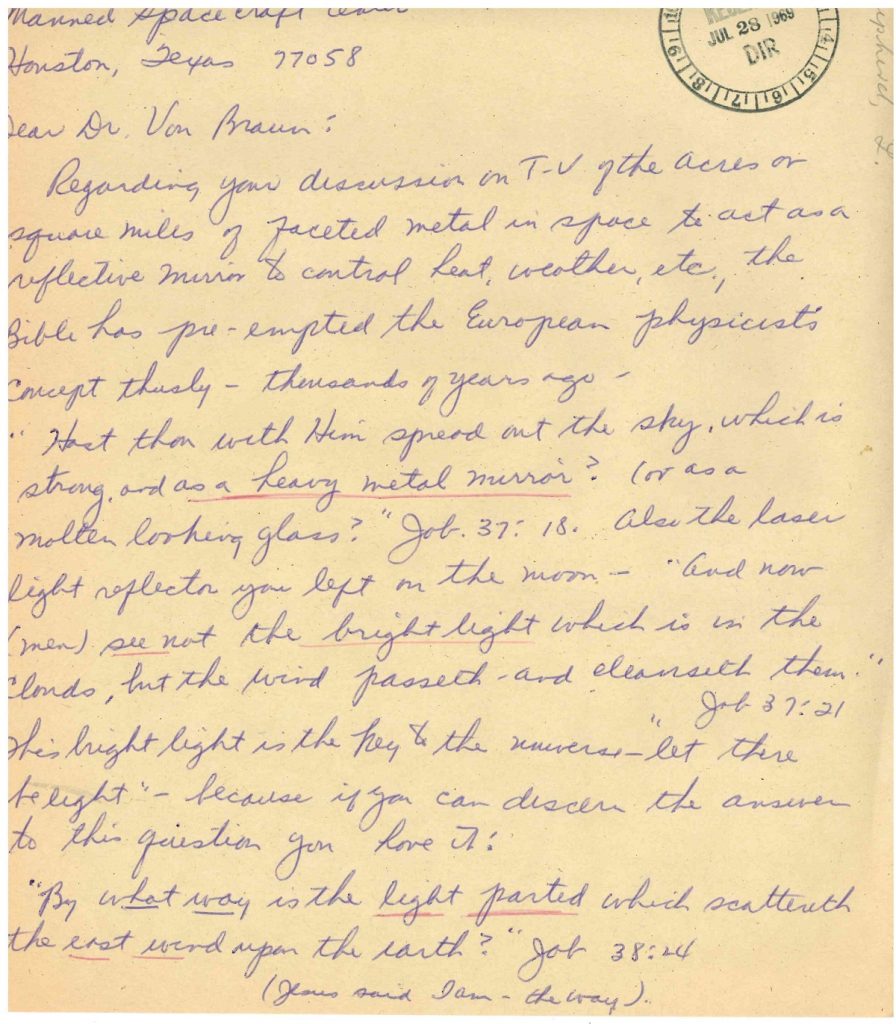 Manned Spacecraft Center
Houston, Texas 77058
JUL 28 1969
DIR
Dear Dr. Von Braun:
Regarding your discussion on T-V of the acres or
square miles of faceted metal in space to act as a
reflective mirror to control heat, weather, etc., the
Bible has pre-empted the European physicist's
concept thusly – thousands of years ago –
" Hast thou with Him spread out the sky, which is
strong, and as a heavy metal mirror? (or as a
molten looking glass?" Job. 37: 18. Also the laser
light reflector you left on the moon – "And now
(men) see not the bright light which is in the
clouds, but the wind passeth - and cleanseth them."
Job 37:21
This bright light is the key to the universe – "let there
be light" – because if you can discern the answer
to this question you have it:
"By what way is the light parted which scattereth
the east wind upon the earth?" Job 38:24
(Jesus said I am – the way).